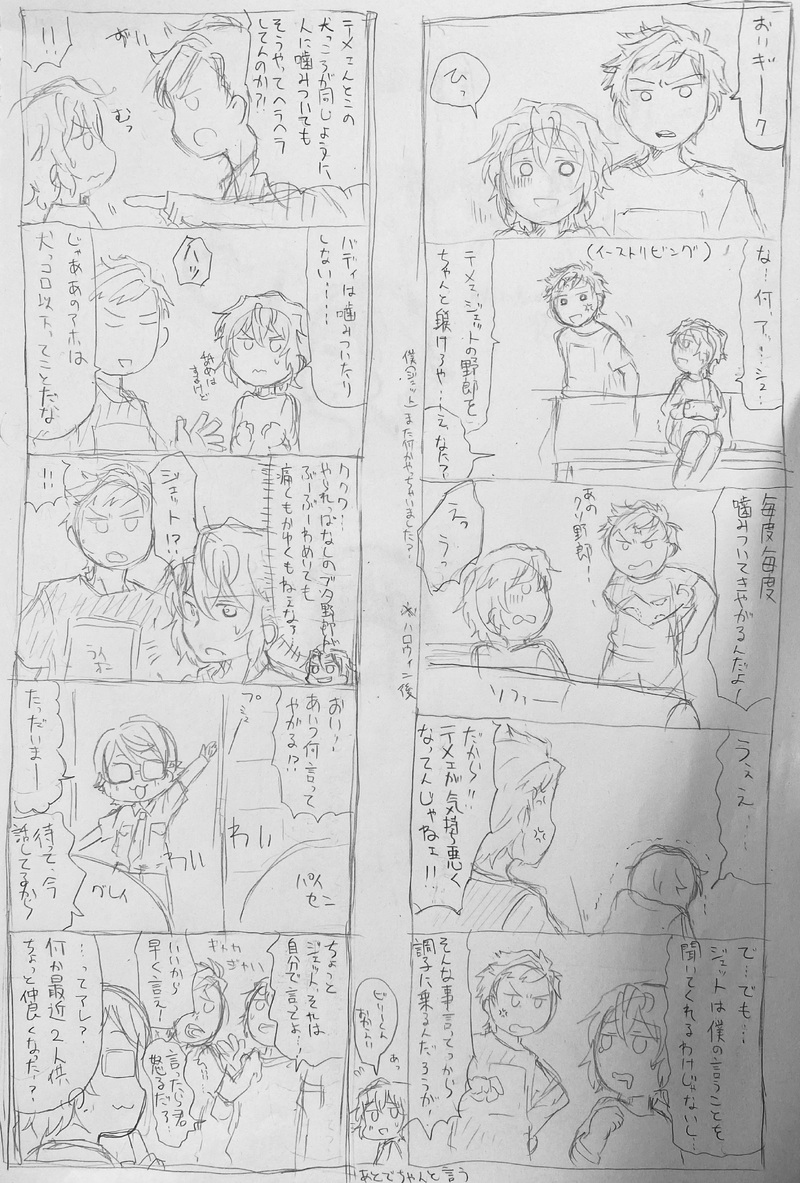 おいギーク
ひっ
な…何、アッ…シュ…
(イーストリビング)
テメェ、ジェットの野郎を
ちゃんと躾けろや…!
えなた?
毎度毎度
噛みついてきやがるんだよ
あの
クソ野郎!
えっうっ
ソファー
うぇえ……
だから!!
テメェが気持ち悪く
なってんじゃねェ!!
で…でも…
ジェットは僕の言うことを
聞いてくれるわけじゃないし…
そんな事言ってっから
調子に乗るんだろうが!
僕(ジェット)また何かやっちゃいました?
※ハロウィン後
テメェんとこの
犬っころが同じように
人に噛みついても
そうやってヘラヘラ
してんのか?!
おい
!!
むっ
バディは噛みついたり
しない……
ハッ
舐めは
するけど
じゃああのアホは
犬っコロ以下ってことだな
ククク…
やられっぱなしのブタ野郎が
ぶーぶーわめいても
痛くもかゆくもねぇなァ
ジェット!?
!!
おい!
あいつ何言って
やがる!?
プシュ
たっだいまー
わい
わい
グレイ
パイセン
待って、今
話してるから
ちょっと
ジェット、それは
自分で言ってよ…!
ぎゃい
ぎゃい
いいから
早く言え!
言ったら君
怒るだろ…
…ってアレ?
何か最近2人供
ちょっと仲良くなった?
ビリーくん
おかえり
あっ
あとでちゃんと言う